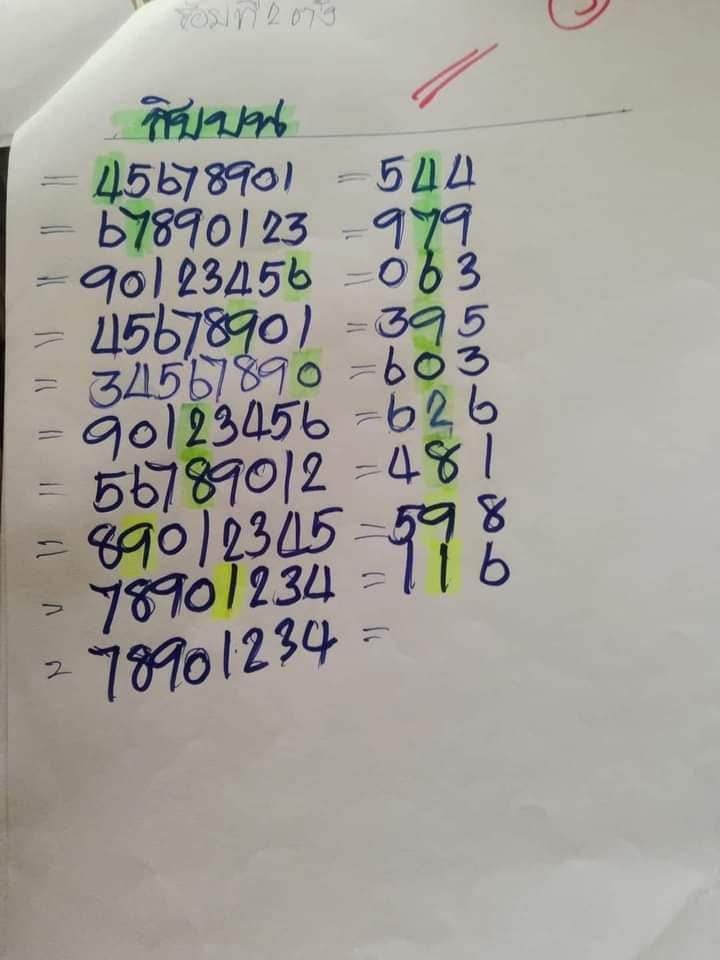 สิบบน
= 45678901 = 544
= 67890123 = 979
= 90123456 = 063
= 45678901 = 395
= 34567890 = 603
= 90123456 = 626
= 56789012 = 481
= 89012345 = 598
= 78901234 = 116
= 78901234 =